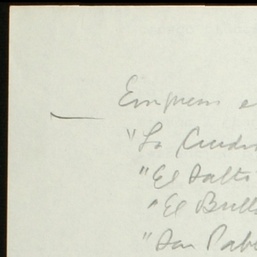 Empresa e
"La Ciuda
"El Salto
"El Bull
"San Pab